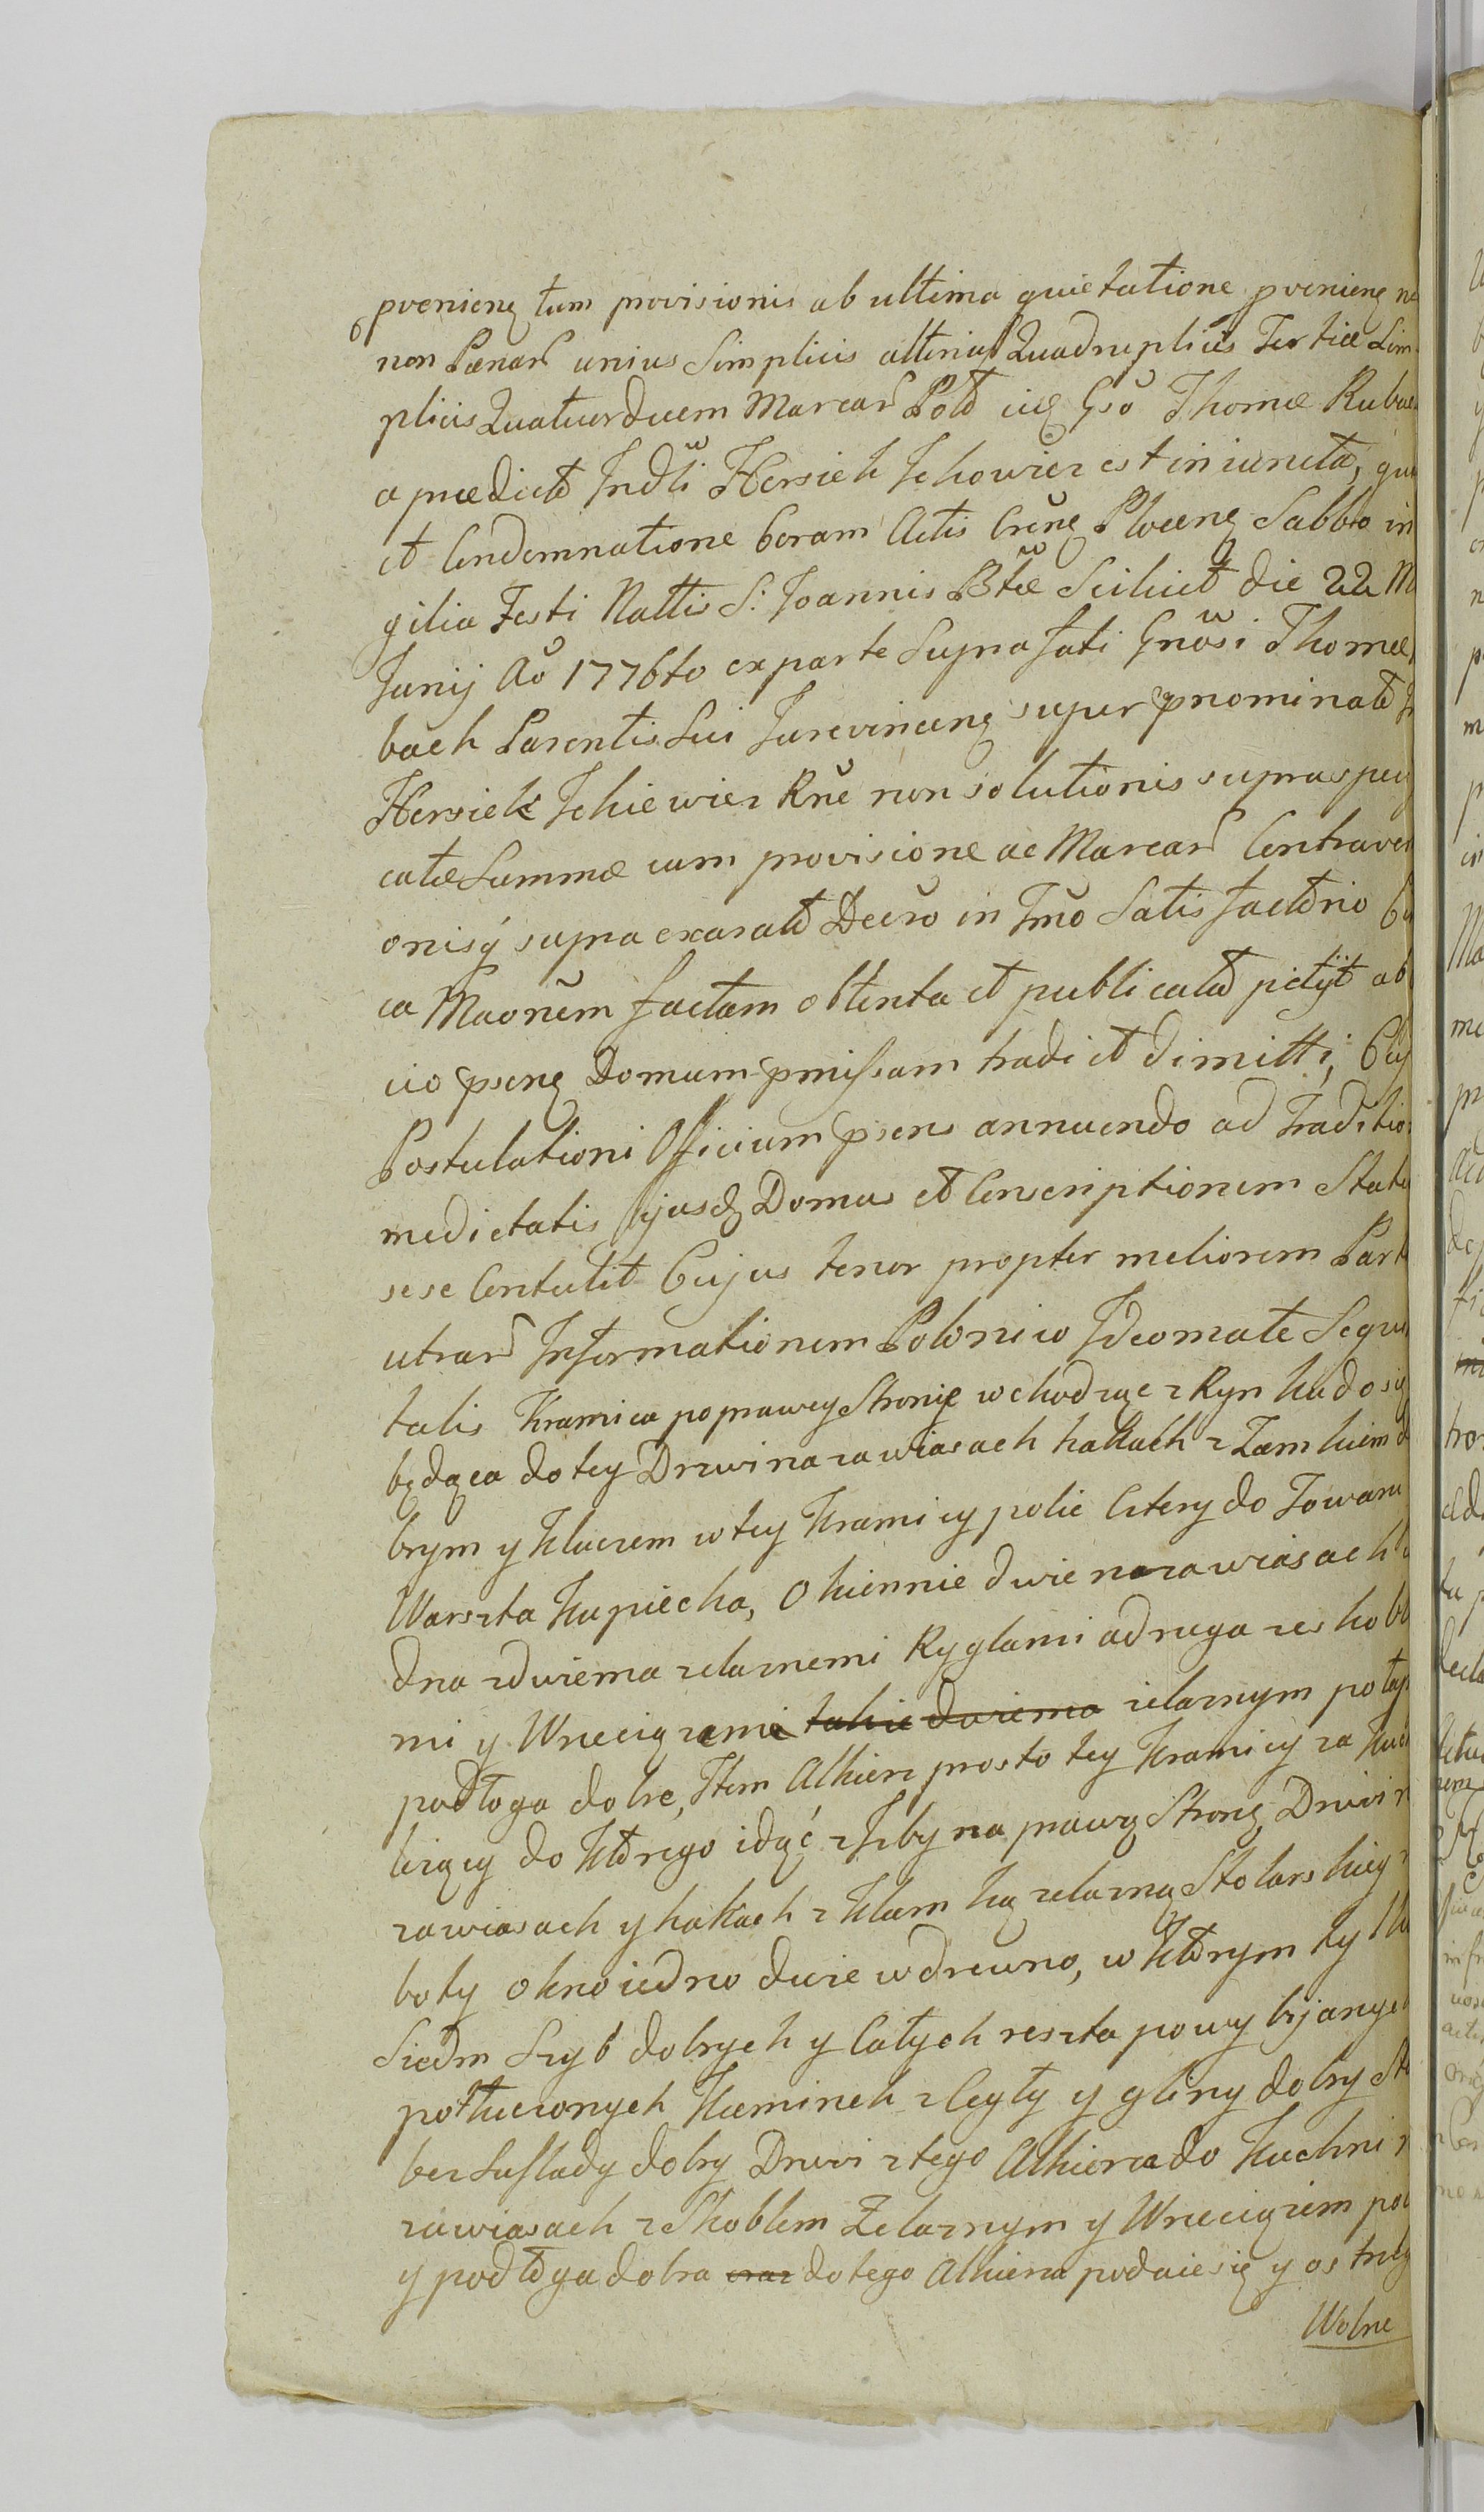 pvenienꝫ tum provisionis ab ultima quietatione pvenienꝫ ne
non Pænar unius Simplicis alterius Quadruplicis Tertiæ Sim
plicis Quatuordecem Marcar Polt Gso Thomæ Rubac
a prædicto Jndli Hersiek Jchowicz est iniuncta, qua
et Condemnatione Coram Actis Plocenꝫ Sabbto in
gilia Festi Nattis S: Joannis Btæ Scilicet die 22 M
Junij Ao 1776to ex parte Suprafati Gnosi Thomæ
bach Parentis Sui Jurevincenꝫ super pnominato
Hersiek Jchiewicz Rne non solutionis supraspeci
catæ Summæ cum provisione ac Marcar Contraven
onisq supra exarato Decro in Tmo Satisfactorio
ca Maonem factam obtenta et publicata petijt ab
cio psenꝫ Domum pmissam tradi et dimitti, Cuj
Postulationi Officium psens annuendo ad Traditio
medietatis Ejusdꝫ Domus et Conscriptionem Statu
sese Contulit Cujus tenor propter meliorem Part
utrar Informationem Polonico Jdeomate Sequi
talis Kramica po prawey Stronie wchodząc z Rynku do si
będąca do tey Drzwi na zawiasach hakach z Zamkiem d
brym y Kluczem w tey Kramicy polic Cztery do Towaru
Warszta Kupiecka, Okiennie dwie na zawiasach
dna z dwiema zelaznemi Ryglami a druga ze skobl
mi y Wrzeciązami takie dwiema zielaznym potap
podłoga dobre, Item Alkierz prosto tey Kramicy za Kuc
lezący do Którego idąć z Izby na prawą Stronę Drzwi n
zawiasach y hakach z Klamką zelazną Stolarskiey
boty okno iedno dwie w drewno, w Którym ty
Siedm Szyb dobrych y Całych reszta powybijanych
potłuczonych Kominek z Cegły y gliny dobry
bez Suflady dobry Drzwi z tego Alkierza do Kuchni n
zawiasach z Skoblem Zelaznym y Wrzeciązem
y podłoga dobra oraz do tego Alkierza podaie się y ostrug
Wolne